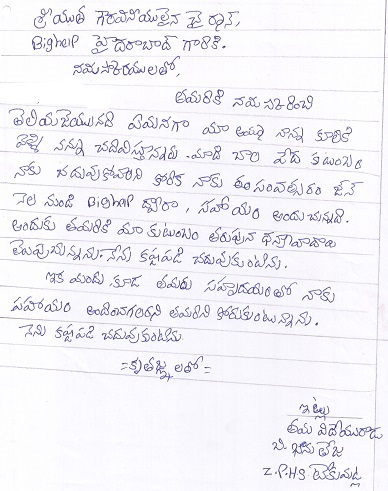 శ్రీయుత గౌరవనీయులైన చైర్మన్,
Bighelp హైదరాబాద్ గారికి.
నమస్కారములతో,
తమరికి నమస్కరించి
తెలియజేయునది ఏమనగా మా అమ్మ నాన్న కూలికి
వెళ్ళి నన్ను చదివిస్తున్నారు. మాది చాల పేద కుటుంబం
నాకు చదువుకోవాలని కోరిక నాకు ఈ సంవత్సరం జూన్
నెల నుండి Bighelp ద్వారా, సహాయం అందుచున్నది.
అందుకు తమరికి మా కుటుంబం తరుపున ధన్యావాదాలు
తెలుపుచున్నాను. నేను కష్టపడి చదువుకుంటాను.
ఇక ముందు కూడ తమరు సహృదయంతో నాకు
సహాయం అందించగలరని తమరిని కోరుకుంటున్నాను.
నేను కష్టపడి చదువుకుంటాను
=కృతజ్ఞలతో=
ఇట్లు
తమ విదేయురాడు
బి. భాను తేజ
Z.P.HS టేకుమట్ల